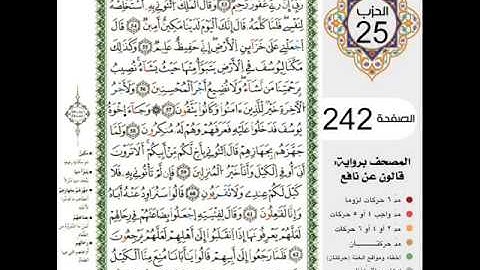 الحزب
25
الصفحة 242
المصحف برواية:
قالون عن نافع
مد ٦ حركات لزوما
مد واجب ٤ أو ٥ حركات
مد ٢ أو ٤ أو ٦ حركات
مد حركتان
إخفاء ومواقع الغنة (حركتان)
ربي إن ربي غفور رحيم وقال الملك ائتوني به أستخلصه
لنفسي فلما كلمه قال إنك اليوم لدينا مكين أمين قال
اجعلني على خزائن الأرض إني حفيظ عليم وكذلك
مكنا ليوسف في الأرض يتبوأ منها حيث يشاء نصيب
برحمتنا من نشاء ولا نضيع أجر المحسنين ولأجر
الآخرة خير للذين ءامنوا وكانوا يتقون وجاء إخوة
يوسف فدخلوا عليه فعرفهم وهم له منكرون ولما
جهزهم بجهازهم قال ائتوني بأخ لكم من أبيكم ألا ترون
أني أوفي الكيل وأنا خير المنزلين فإن لم تأتوني به فلا
كيل لكم عندي ولا تقربون قالوا سنراود عنه أباه
وإنا لفاعلون وقال لفتيته اجعلوا بضاعتهم في رحالهم
لعلهم يعرفونها إذا انقلبوا إلى أهلهم لعلهم يرجعون
فلما رجعوا إلى أبيهم قالوا يأبانا منع منا الكيل